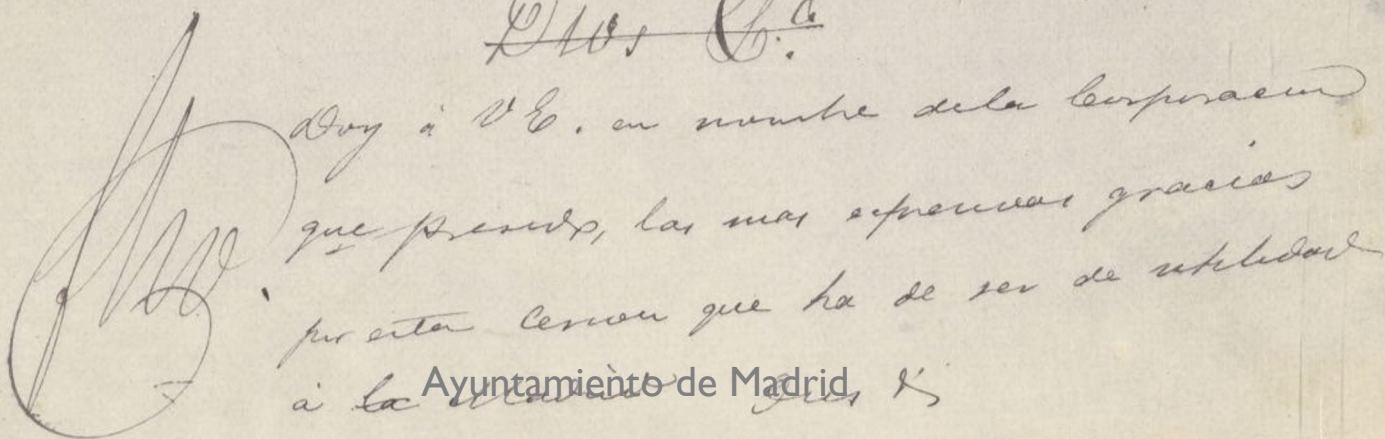 Dios &.ª
Doy á VE. en nombre dela Corporacion
que presido, las mas expresivas gracias
por esta cesion que ha de ser de utilidad
á la Madrid Dios &
Ayuntamiento de Madrid